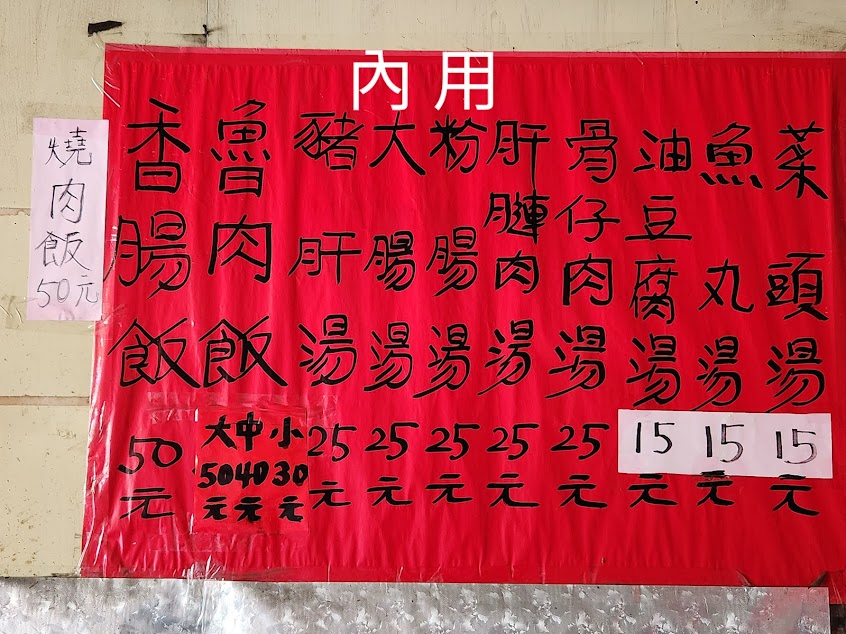 內用
菜頭湯15元
魚丸湯15元
油豆腐湯15元
骨仔肉湯25元
肝腱肉湯25元
粉腸湯25元
大腸湯25元
豬肝湯25元
魯肉飯
大中小
504030
元元元
香腸飯50元
燒肉飯50元